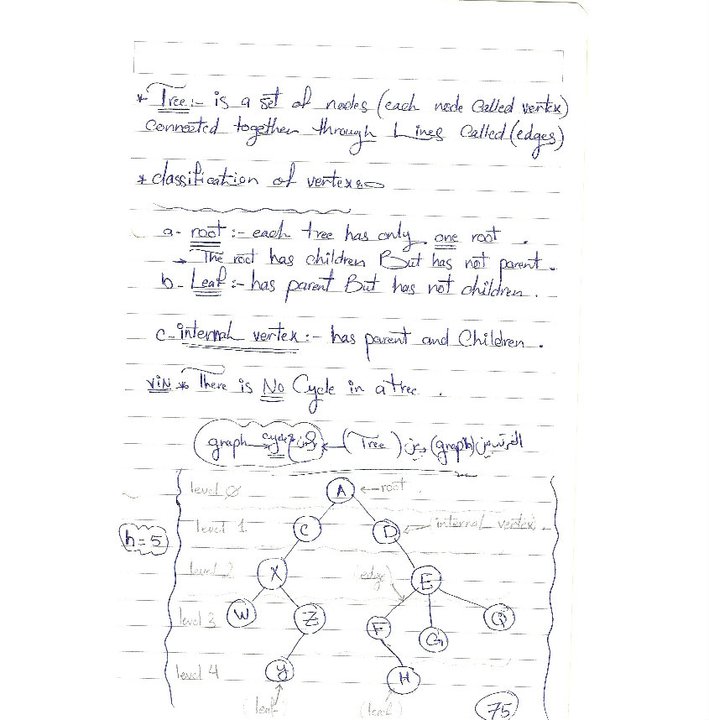 * Tree :- is a set of nodes (each node called vertex)
connected together through Lines called (edges)
* classification of vertexes
a- root :- each tree has only one root .
→ The root has children But has not parent .
b- Leaf :- has parent But has not children .
c- internal vertex :- has parent and Children .
V.iN * There is No Cycle in a tree .
الفرق بين (graph) وبين (Tree)
graph cycle
level 0 A ← root
level 1 C D ← internal vertex
h = 5
level 2 X E
edge
level 3 W Z F G Q
level 4 y H
(leaf) (leaf)
75